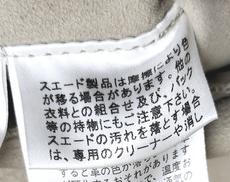 スエード製品は摩擦により色
が移る場合があります。他の
衣料との組合せ及び、バック
等の持物にもご注意下さい。
スエードの汚れを落とす場合
は、専用のクリーナーや消し